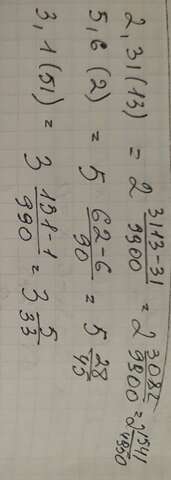 2,31(13) = 2 3113-31/9900 = 2 3082/9900 = 2 1541/4950
5,6(2) = 5 62-6/90 = 5 28/45
3,1(51) = 3 151-1/990 = 3 5/33